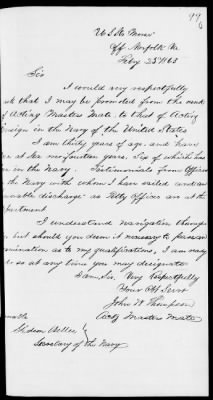 99
U.S. Str Miner
Off Norfolk Va.
Feby 25th 1863
Sir
I would very respectfully
ask that I may be promoted from the rank
of Acting Masters Mate, to that of Acting
Ensign in the Navy of the United States
I am thirty years of age, and have
been at sea now fourteen years. Six of which has
been in the Navy. Testimonials from Officers
in the Navy with whom I have sailed and an
"honorable discharge" as Petty Officer are at the
Department
I understand navigation though
but should you deem it necessary to pass an
examination as to my qualifications, I am ready
to do so at any time you may designate
I am Sir Very Respectfully
Your Obt Servt
John W Thompson
Acty Masters Mate
Gideon Welles
Secretary of the Navy